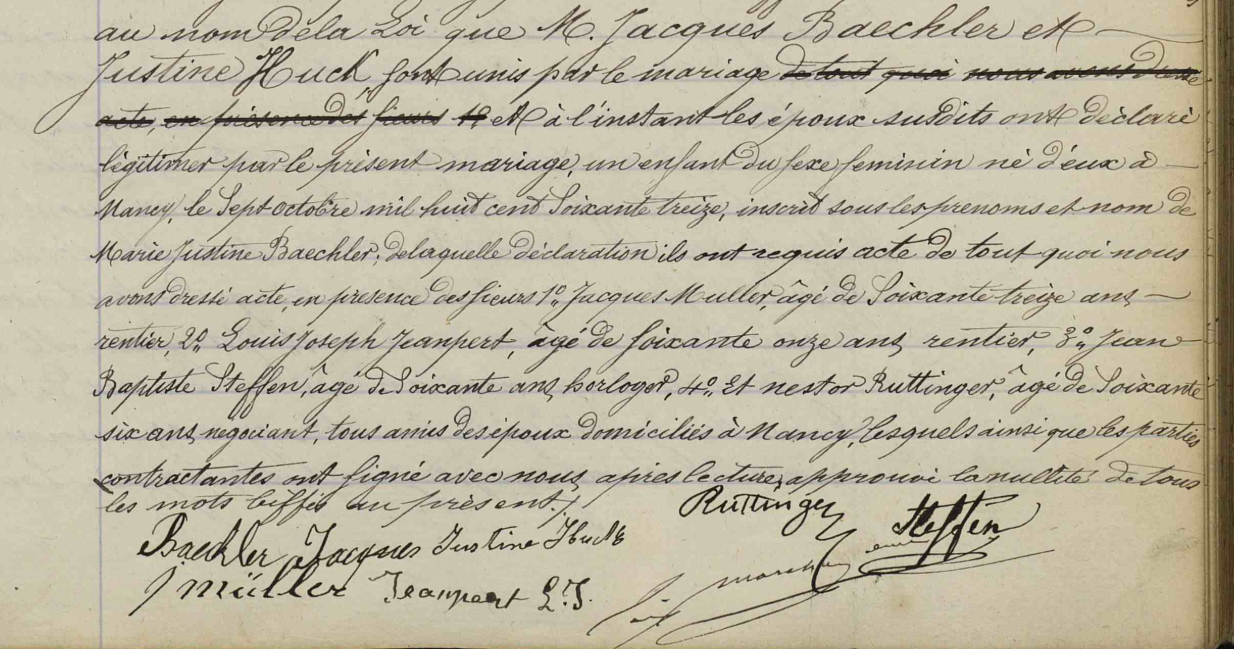 au nom de la Loi que M. Jacques Baechler et
Justine Huck, sont unis par le mariage de tout quoi nous avons dressé
acte, en présence des sieurs 1º et à l'instant les époux susdits ont déclaré
légitimer par le présent mariage, un enfant du sexe feminin né d'eux à
Nancy, le Sept octobre mil huit cent Soixante treize, inscrit sous les prenoms et nom de
Marie Justine Baechler, de laquelle déclaration ils ont requis acte de tout quoi nous
avons dressé acte, en présence des sieurs 1º Jacques Muller, âgé de Soixante treize ans,
rentier, 2º Louis Joseph Jeanpert, âgé de soixante onze ans, rentier, 3º Jean
Baptiste Steffen, âgé de Soixante ans, horloger, 4º Et nestor Ruttinger, âgé de Soixante
six ans, negociant, tous amis des époux domiciliés à Nancy, lesquels ainsi que les parties
contractantes ont signé avec nous, après lecture, approuvé la nullité de tous
les mots biffés au présent.
Ruttinger Steffen
Baechler Jacques Justine Huck
J Müller Jeanpert L. J.